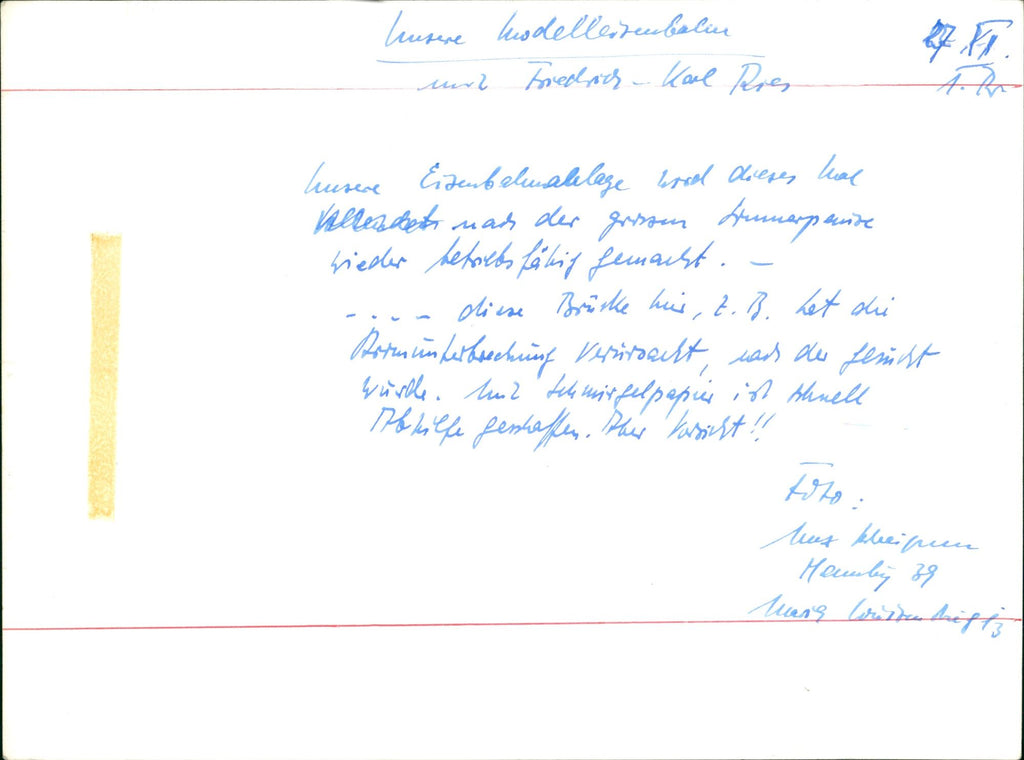 Unsere Modelleisenbahn
27 XII.
mit Friedrich-Karl Ries
1. Pr.
Unsere Eisenbahnanlage wird dieses Mal
nach der grossen Sommerpause
wieder betriebsfähig gemacht. —
- . . - diese Brücke hier, z. B. hat die
Stromunterbrechung verursacht, nach der gesucht
wurde. Mit Schmirgelpapier ist schnell
Abhilfe geschaffen. Aber Vorsicht!!
Foto:
Hamburg 39